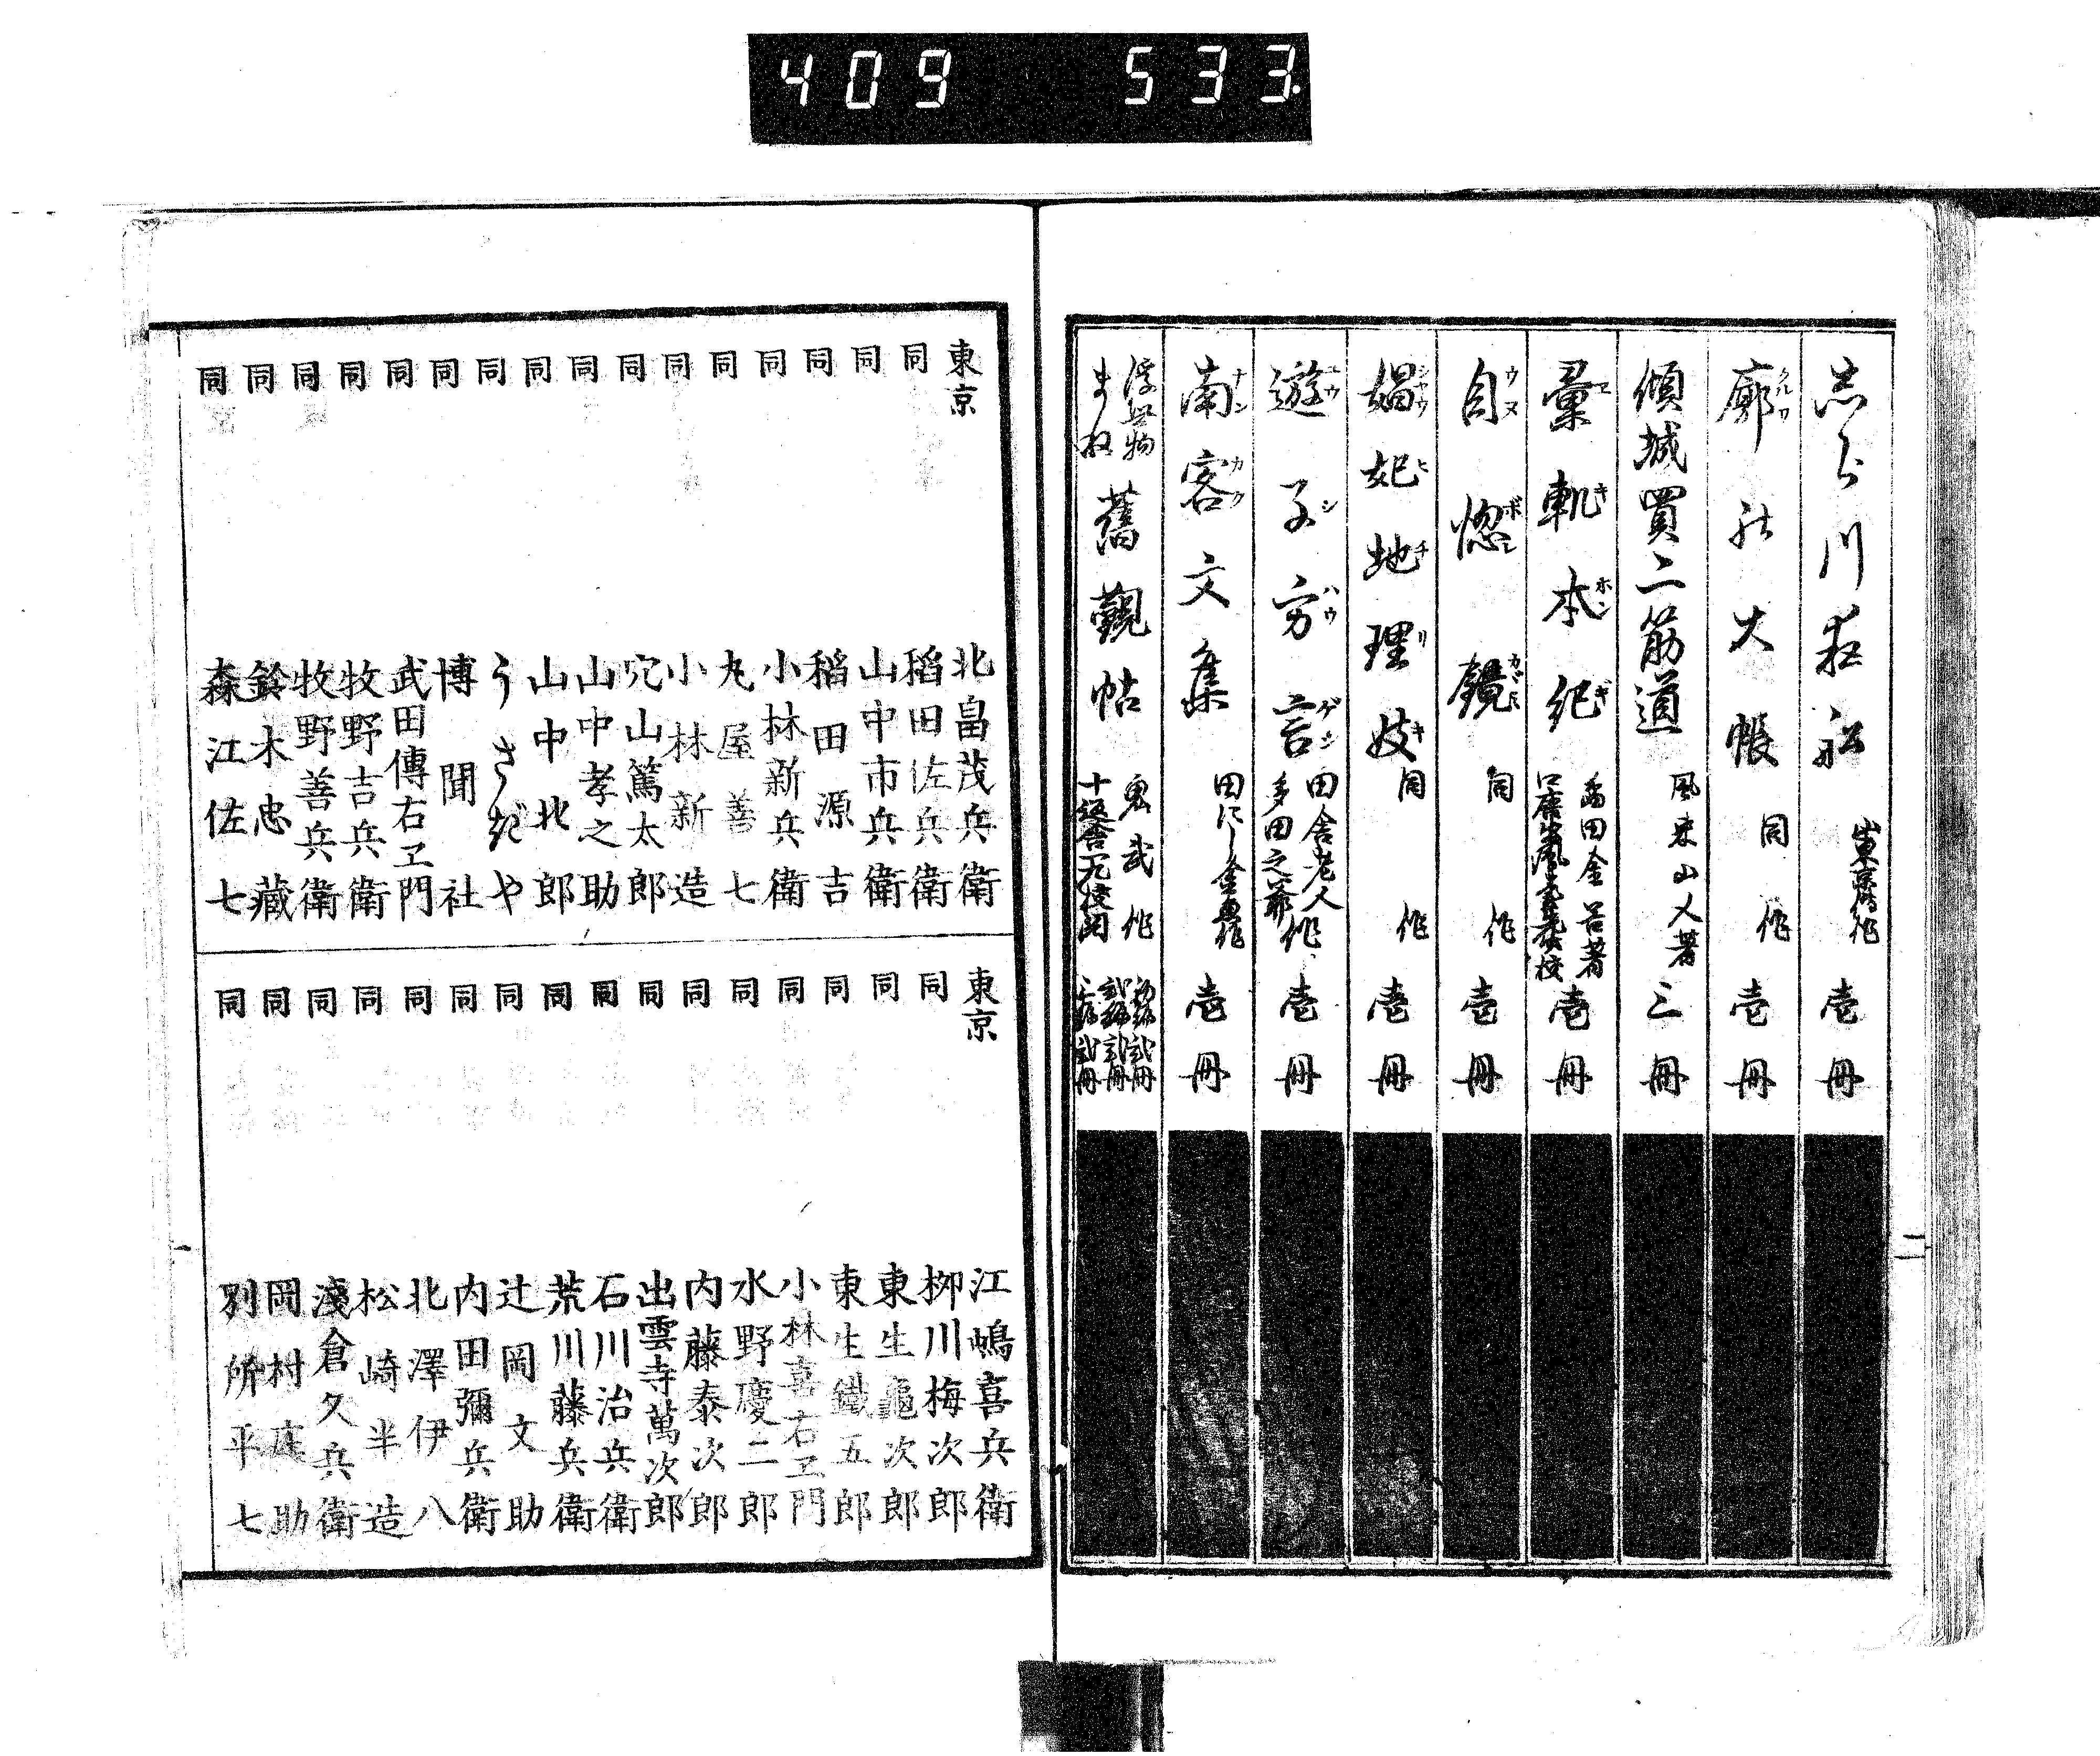 409 533.
志ら川夜船 山東京傳作 壱冊
廓の大帳 同作 壱冊
傾城買二筋道 風來山人著 三冊
彙軌本紀 畠田金谷著 壱冊
自惚鏡 同作 壱冊
娼妃地理妓 同作 壱冊
遊子方言 田舎老人多田之爺作 壱冊
南客文集 田にし金魚作 壱冊
舊觀帖 鬼武作 十返舎一九校閲 初編弐冊 弐編弐冊 三編弐冊
二
東京 北畠茂兵衛
同 稻田佐兵衛
同 山中市兵衛
同 稻田源吉
同 小林新兵衛
同 丸屋善七
同 小林新造
同 穴山篤太郎
同 山中孝之助
同 山中北郎
同 うさぎや
同 博聞社
同 武田傳右エ門
同 牧野吉兵衛
同 牧野善兵衛
同 鈴木忠藏
同 森江佐七
東京 江嶋喜兵衛
同 栁川梅次郎
同 東生龜次郎
同 東生鐵五郎
同 小林喜右エ門
同 水野慶二郎
同 内藤泰次郎
同 出雲寺萬次郎
同 石川治兵衛
同 荒川藤兵衛
同 辻岡文助
同 内田彌兵衛
同 北澤伊八
同 松崎半造
同 淺倉久兵衛
同 岡村庄助
同 別所平七